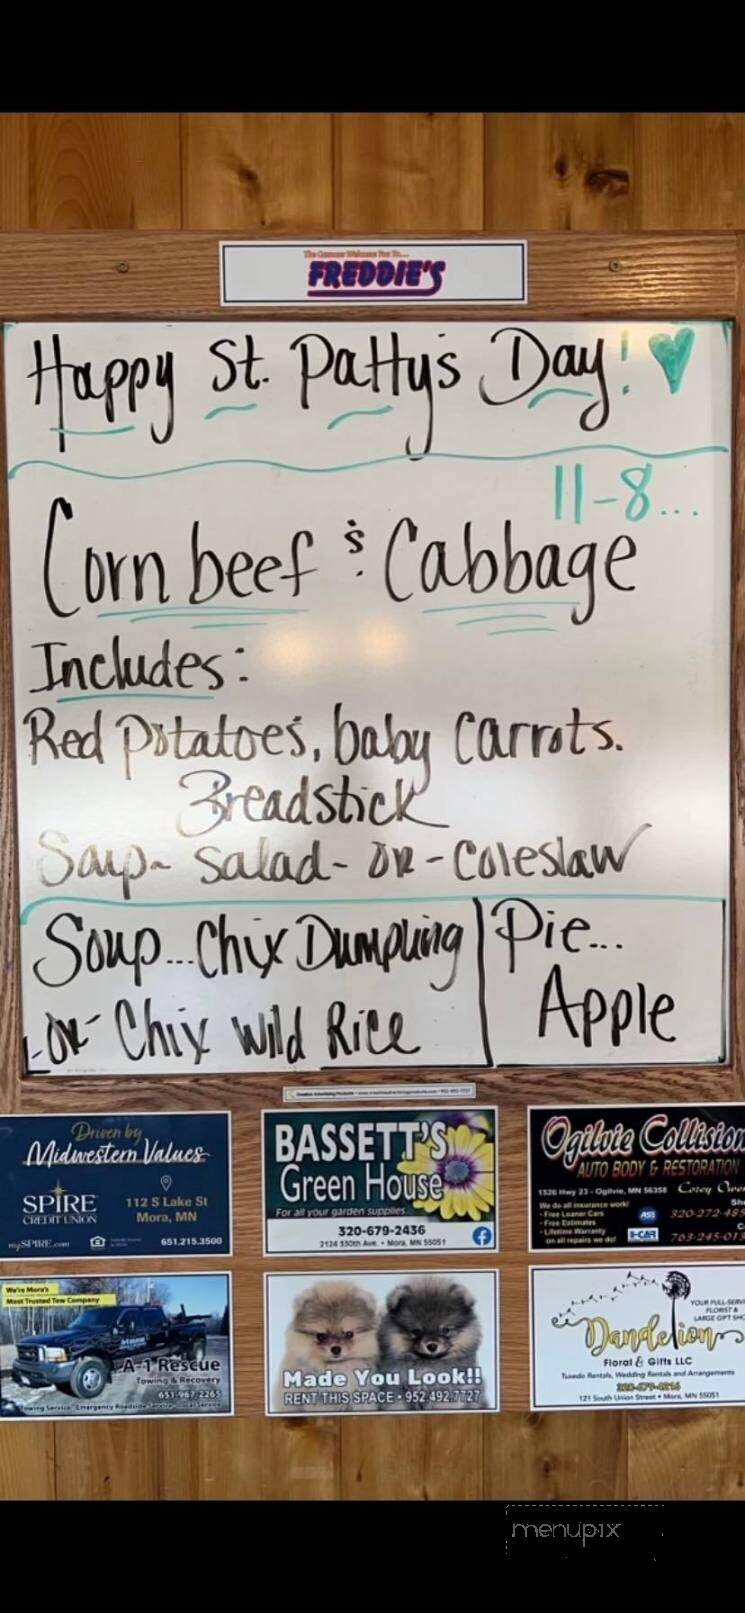 The Common Welcome For To...
FREDDIE'S
Happy St. Patty's Day!
11-8...
Corn beef & Cabbage
Includes:
Red Potatoes, baby Carrots.
Breadstick
Soup- Salad- OR - Coleslaw
Soup... Chix Dumpling
-OR- Chix Wild Rice
Pie...
Apple
Driven by
Midwestern Values
SPIRE
CREDIT UNION
112 S Lake St
Mora, MN
mySPIRE.com
651.215.3500
BASSETT'S
Green House
For all your garden supplies
320-679-2436
2124 330th Ave. • Mora, MN 55051
Ogilvie Collision
AUTO BODY & RESTORATION
1526 Hwy 23 - Ogilvie, MN 56358
Corey Owe
We do all insurance work!
- Free Loaner Cars
- Free Estimates
- Lifetime Warranty
on all repairs we do!
ASE
I-CAR
320-272-485
763-245-013
We're Mora's
Most Trusted Tow Company
A-1 Rescue
Towing & Recovery
651-967-2265
Towing Service - Emergency Roadside Service - Local Service
Made You Look!!
RENT THIS SPACE • 952 492.7727
YOUR FULL-SERV
FLORIST &
LARGE GIFT SHO
Dandelion
Floral & Gifts LLC
Tuxedo Rentals, Wedding Rentals and Arrangements
320-679-0216
121 South Union Street • Mora, MN 55051
menupix